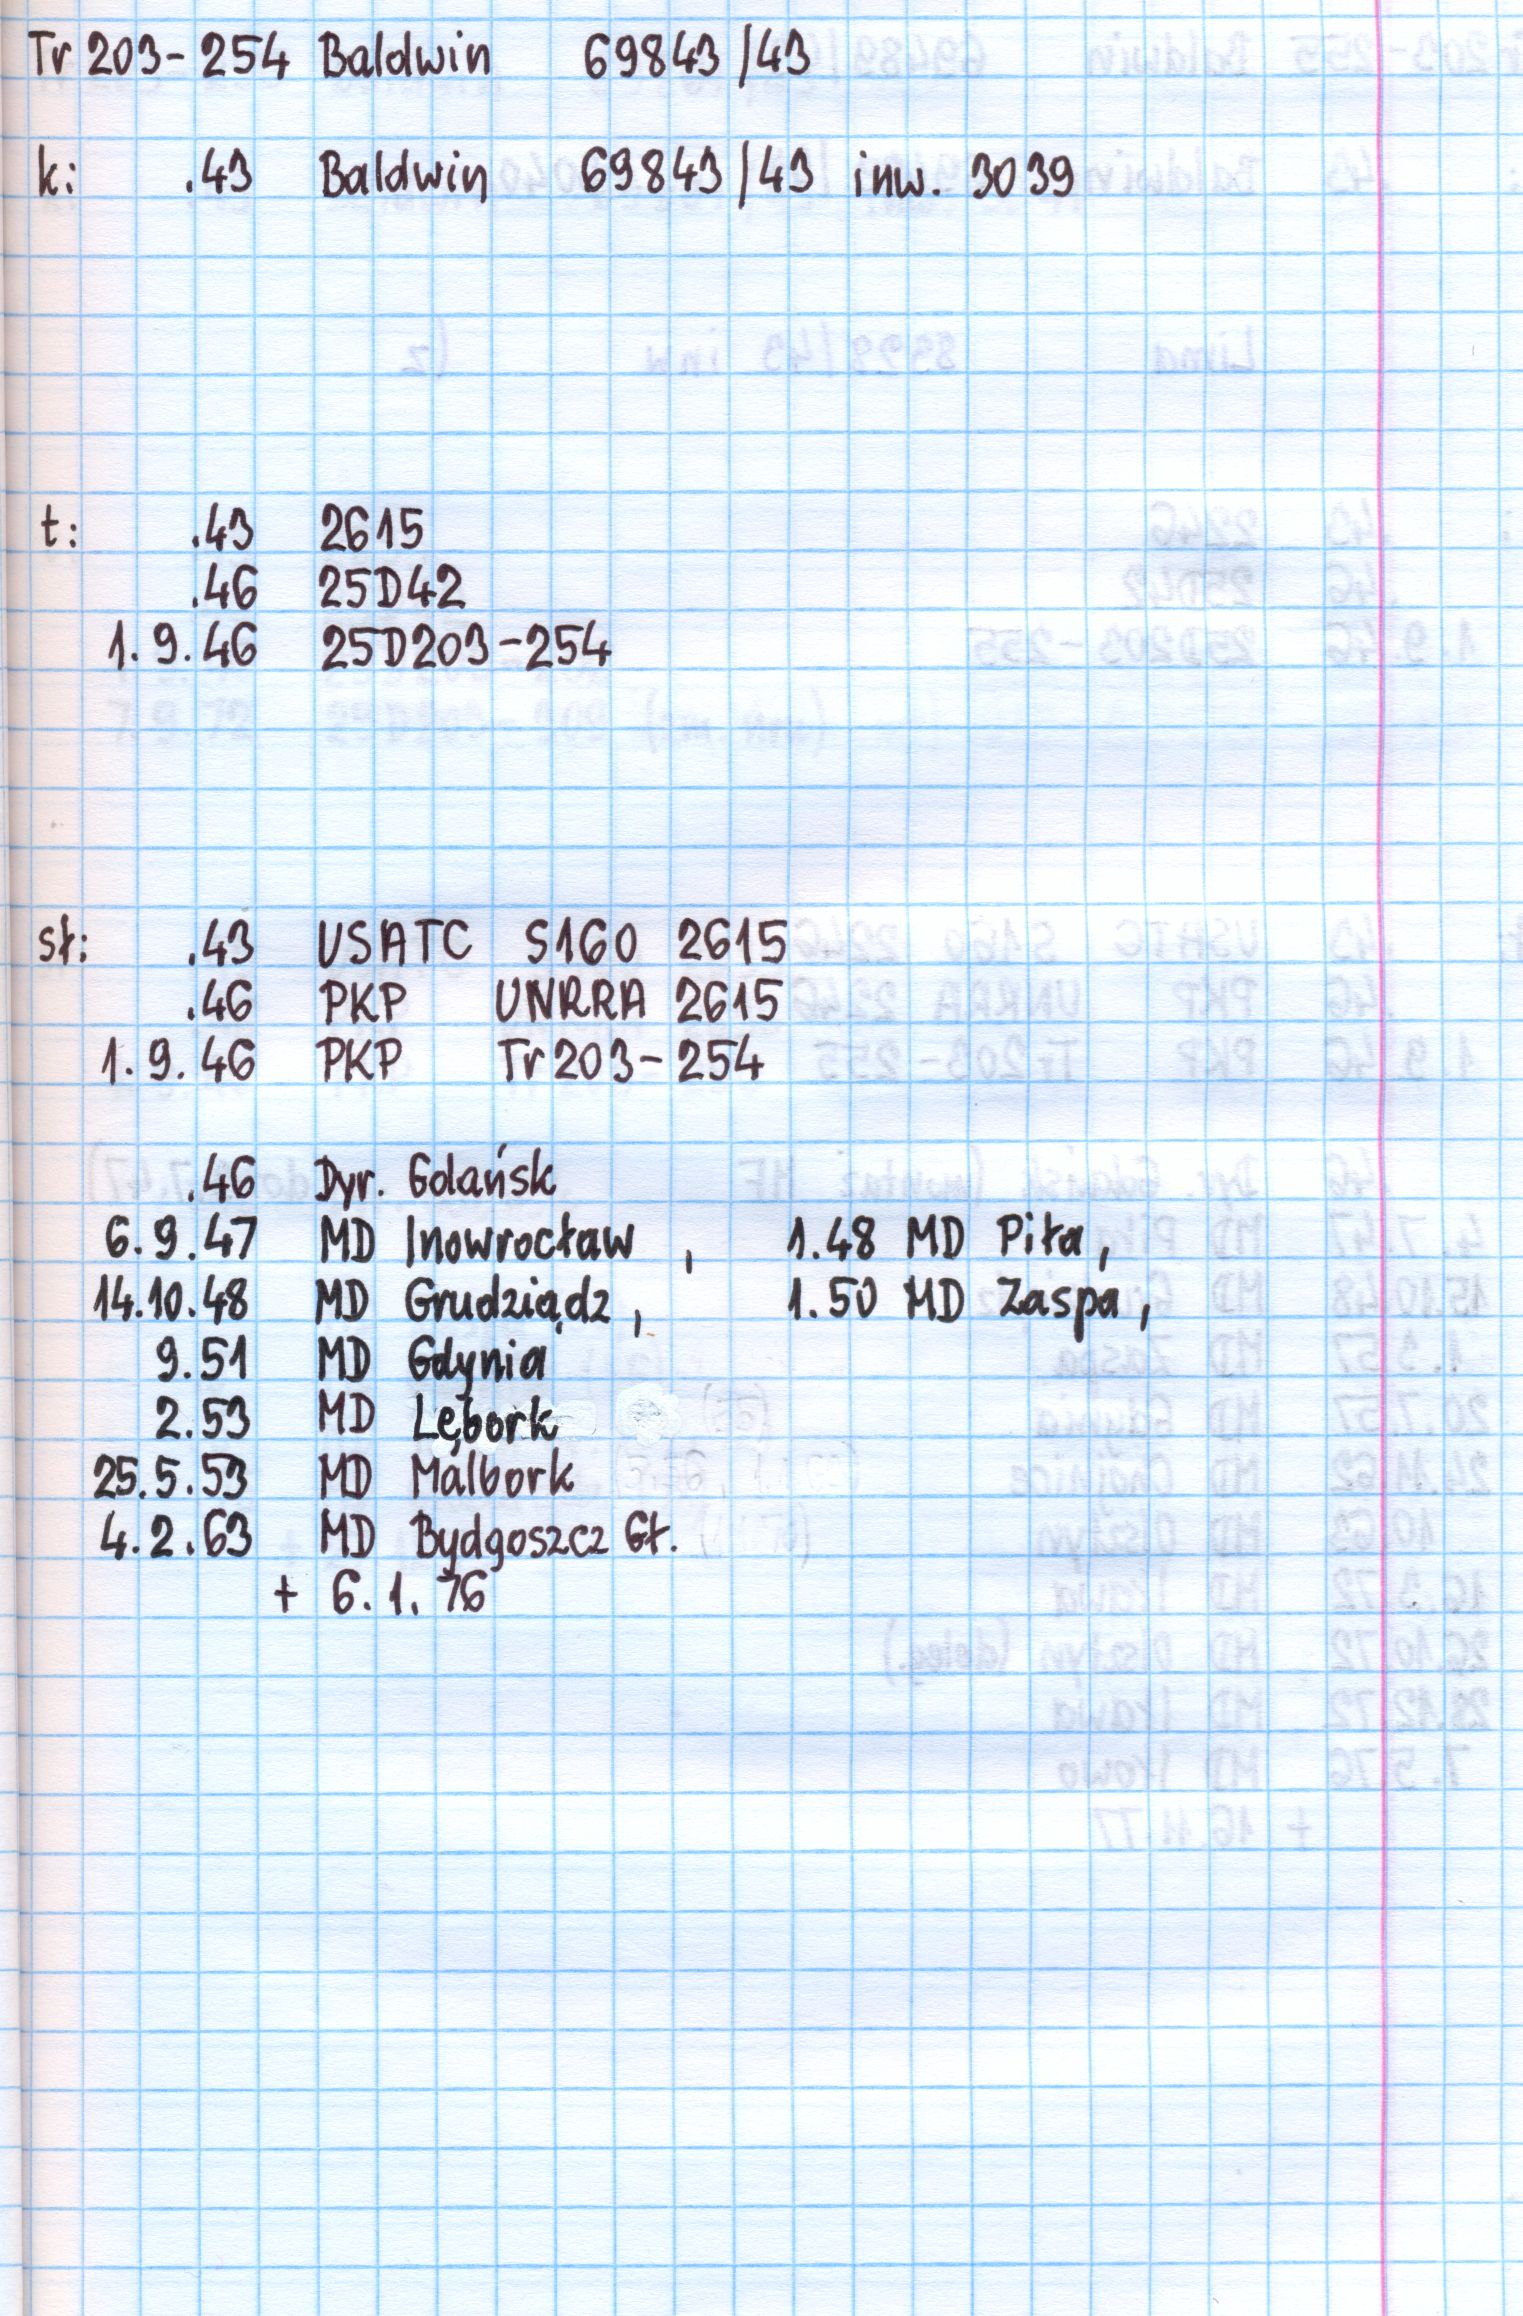 Tr 203-254 Baldwin 69843/43
k: .43 Baldwin 69843/43 inw. 3039
t: .43 2615
.46 25D42
1.9.46 25D203-254
sł: .43 USATC S160 2615
.46 PKP UNRRA 2615
1.9.46 PKP Tr203-254
.46 Dyr. Gdańsk
6.9.47 MD Inowrocław , 1.48 MD Piła,
14.10.48 MD Grudziądz, 1.50 MD Zaspa,
9.51 MD Gdynia
2.53 MD Lębork
25.5.53 MD Malbork
4.2.63 MD Bydgoszcz Gł.
+ 6.1.76